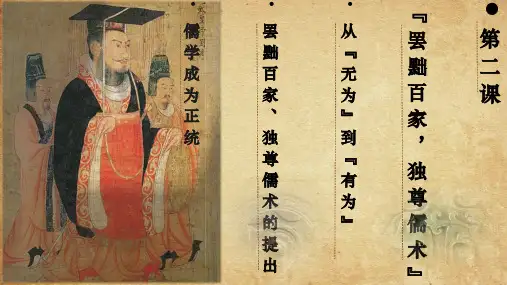 第二课
『罢黜百家，独尊儒术』
从『无为』到『有为』
罢黜百家、独尊儒术的提出
儒学成为正统